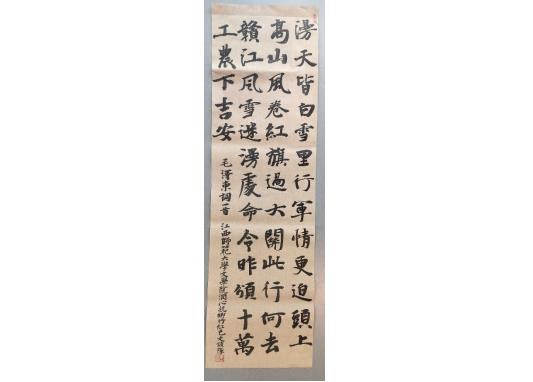 漫天皆白雪里行軍情更迫頭上
高山風卷紅旗過大關此行何去
贛江風雪迷漫處命令昨頒十萬
工農下吉安
毛澤東詞一首 江西師範大學文學院潤心